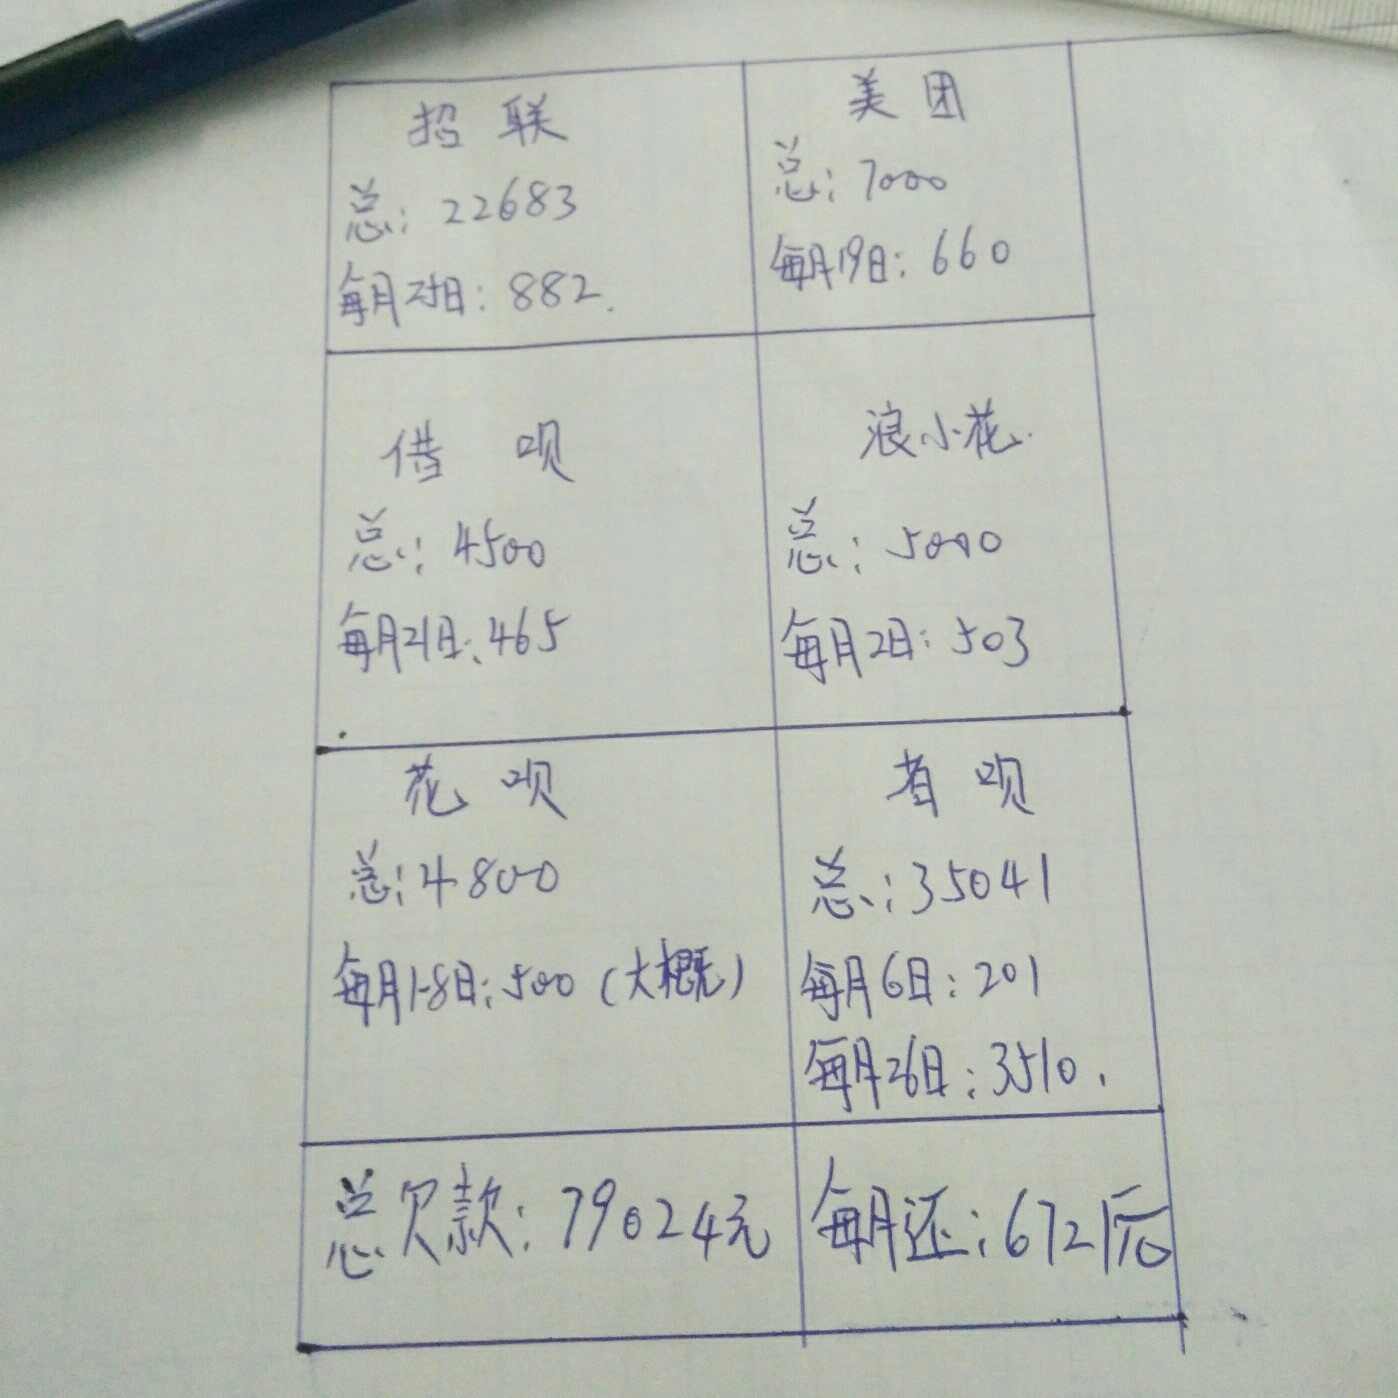 招联
总：22683
每月21日：882.
美团
总：7000
每月19日：660
借呗
总：4500
每月21日：465
浪小花
总：5000
每月2日：503
花呗
总：4800
每月1-8日：500（大概）
有呗
总：35041
每月6日：201
每月26日：3510.
总欠款：79024元
每月还：6721元